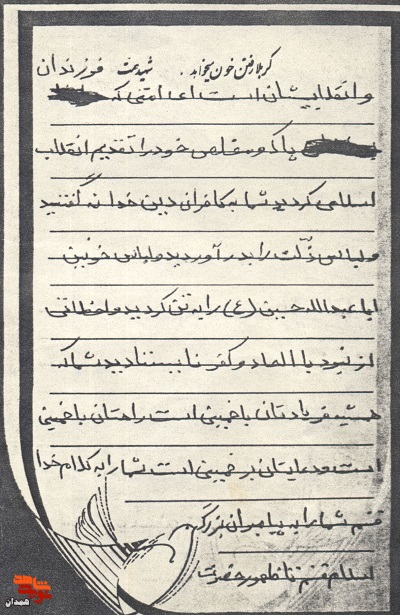 کربلا رفتن خون میخواهد. شهید همت فرزندان
و انقلابیشان است ای امتی که
پاک و مقلص خود را تقدیم انقلاب
اسلامی کردید شما به کافران دین خدا نه گفتید
و لباس ذلّت را بدر آوردید و لباس خونین
ابا عبدالله حسین (ع) را به تن کردید و لحظاتی
از نبرد با الحاد و کفر نا ایستادید شما که
همیشه فریادتان یا خمینی است راهتان با خمینی
است و دعایتان بر خمینی است شما را به کلام خدا
قسم شما را به پیامبران بزرگ
اسلام قسم تا ظهور حضرت
شاهد
همدان